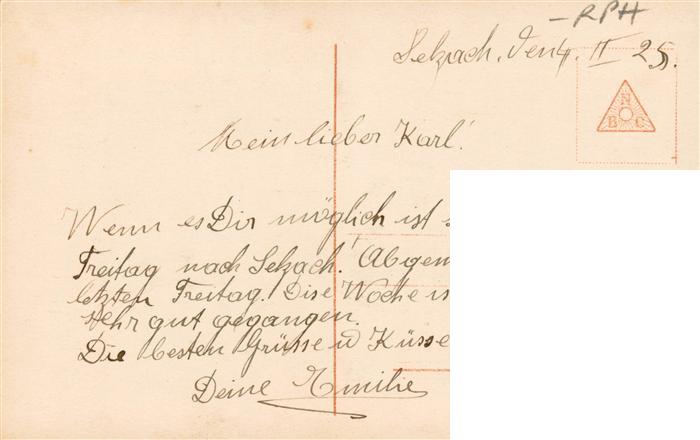 -RPH
Selzach, den 4. II 25.
N
B C
Mein lieber Karl!
Wenn es Dir möglich ist
Freitag nach Selzach!
letzten Freitag. Dise Woche
sehr gut gegangen.
Die besten Grüsse u Küsse
Deine Emilie